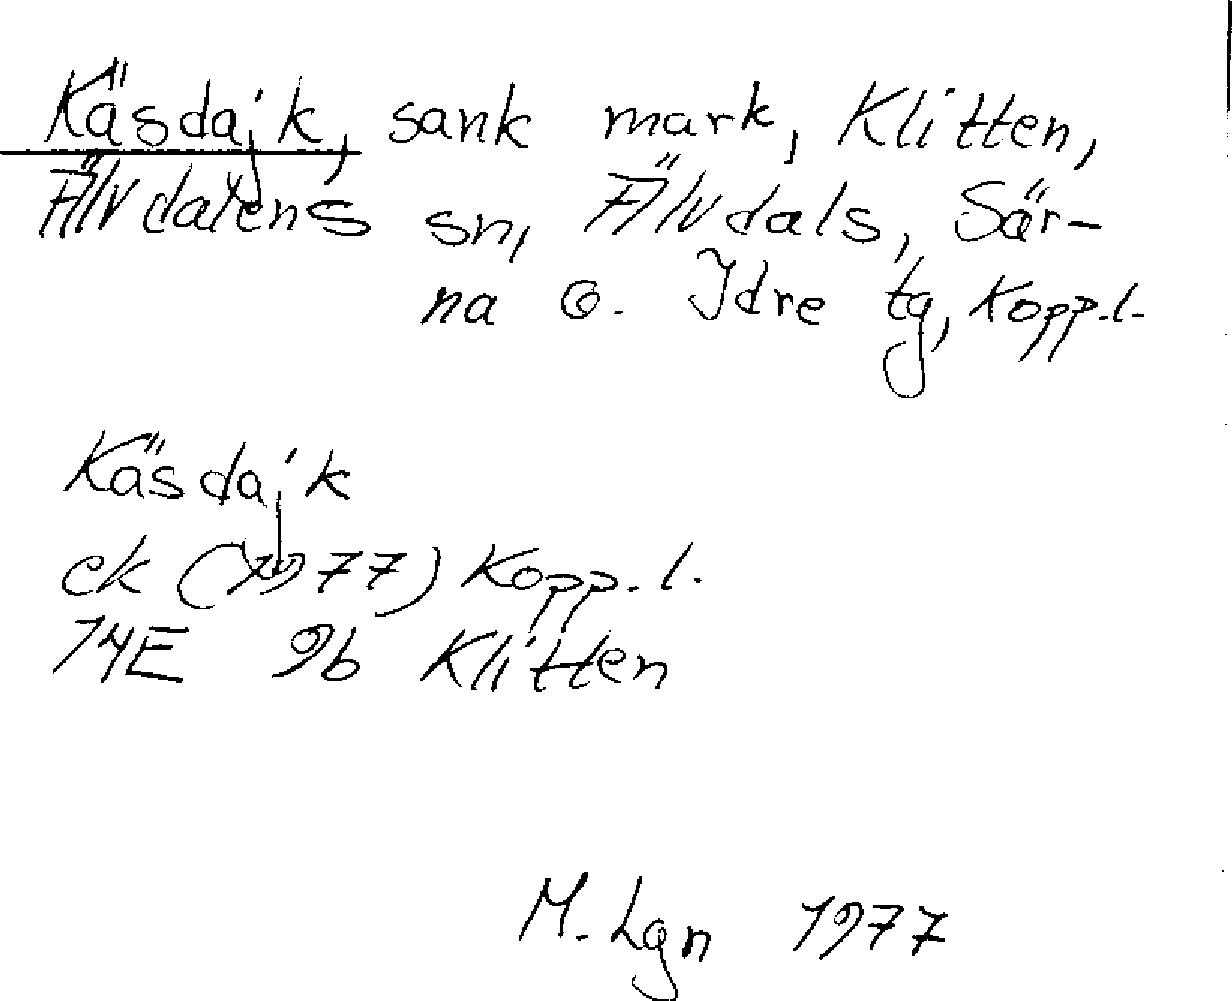 Käsdajk, sank mark, Klitten,
Älvdalens sn, Älvdals, Sär-
na o. Idre tg, Kopp.l.
Käsdajk
ek (1977) Kopp.l.
14E 9b Klitten
M. Lgn 1977